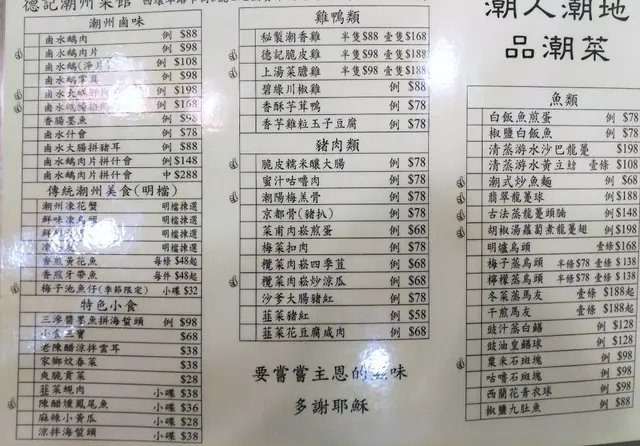 德記潮州菜館
潮州鹵味
鹵水鵝肉 例 $88
鹵水鵝肉片 例 $98
鹵水鵝(淨片) 例 $108
鹵水鵝掌翼 例 $98
例 $198
例 $168
香腸墨魚 例 $98
鹵水什會 例 $78
鹵水大腸拼豬耳 例 $88
鹵水鵝肉片拼什會 例 $148
鹵水鵝肉片拼什會 中 $288
傳統潮州美食(明檔)
潮州凍花蟹 明檔揀選
鮮味凍烏頭 明檔揀選
明檔揀選
明檔揀選
香煎黃花魚 每條 $48起
香煎牙帶魚 每件 $48起
梅子池魚仔(季節限定) 小碟 $32
特色小食
三滲醬墨魚拼海蜇頭 例 $98
$68
老陳醋涼拌雲耳 $38
家鄉炆春菜 $38
爽脆貢菜 $28
韮菜蠔肉 小碟 $38
陳醋燻鳳尾魚 小碟 $36
麻辣小黃瓜 小碟 $28
涼拌海蜇頭 小碟 $38
雞鴨類
秘製潮香雞 半隻 $88 壹隻 $168
德記脆皮雞 半隻 $98 壹隻 $188
上湯菜膽雞 半隻 $98 壹隻 $188
碧綠川椒雞 例 $88
香酥芋茸鴨 例 $78
香芋雞粒玉子豆腐 例 $78
豬肉類
脆皮糯米釀大腸 例 $78
蜜汁咕嚕肉 例 $78
潮陽梅羔骨 例 $78
京都骨(豬扒) 例 $78
菜甫肉崧煎蛋 例 $68
梅菜扣肉 例 $78
欖菜肉崧四季荳 例 $68
欖菜肉崧炒涼瓜 例 $68
沙爹大腸豬紅 例 $78
韮菜豬紅 例 $58
韮菜花豆腐咸肉 例 $68
要嘗嘗主恩的滋味
多謝耶穌
潮人潮地
品潮菜
魚類
白飯魚煎蛋 例 $78
椒鹽白飯魚 例 $78
清蒸游水沙巴龍躉 $198
清蒸游水黃立鯧 壹條 $108
潮式炒魚麵 例 $68
翡翠龍躉球 例 $188
古法蒸龍躉頭腩 例 $148
胡椒湯蘿蔔煮龍躉翅 例 $198
明爐烏頭 壹條 $168
梅子蒸烏頭 半條 $78 壹條 $138
檸檬蒸烏頭 半條 $78 壹條 $138
冬菜蒸馬友 壹條 $188起
干煎馬友 壹條 $188起
豉汁蒸白鱔 例 $128
豉油皇鱔球 例 $128
粟米石斑塊 例 $98
咕嚕石斑塊 例 $98
西蘭花青衣球 例 $98
椒鹽九肚魚 例 $88